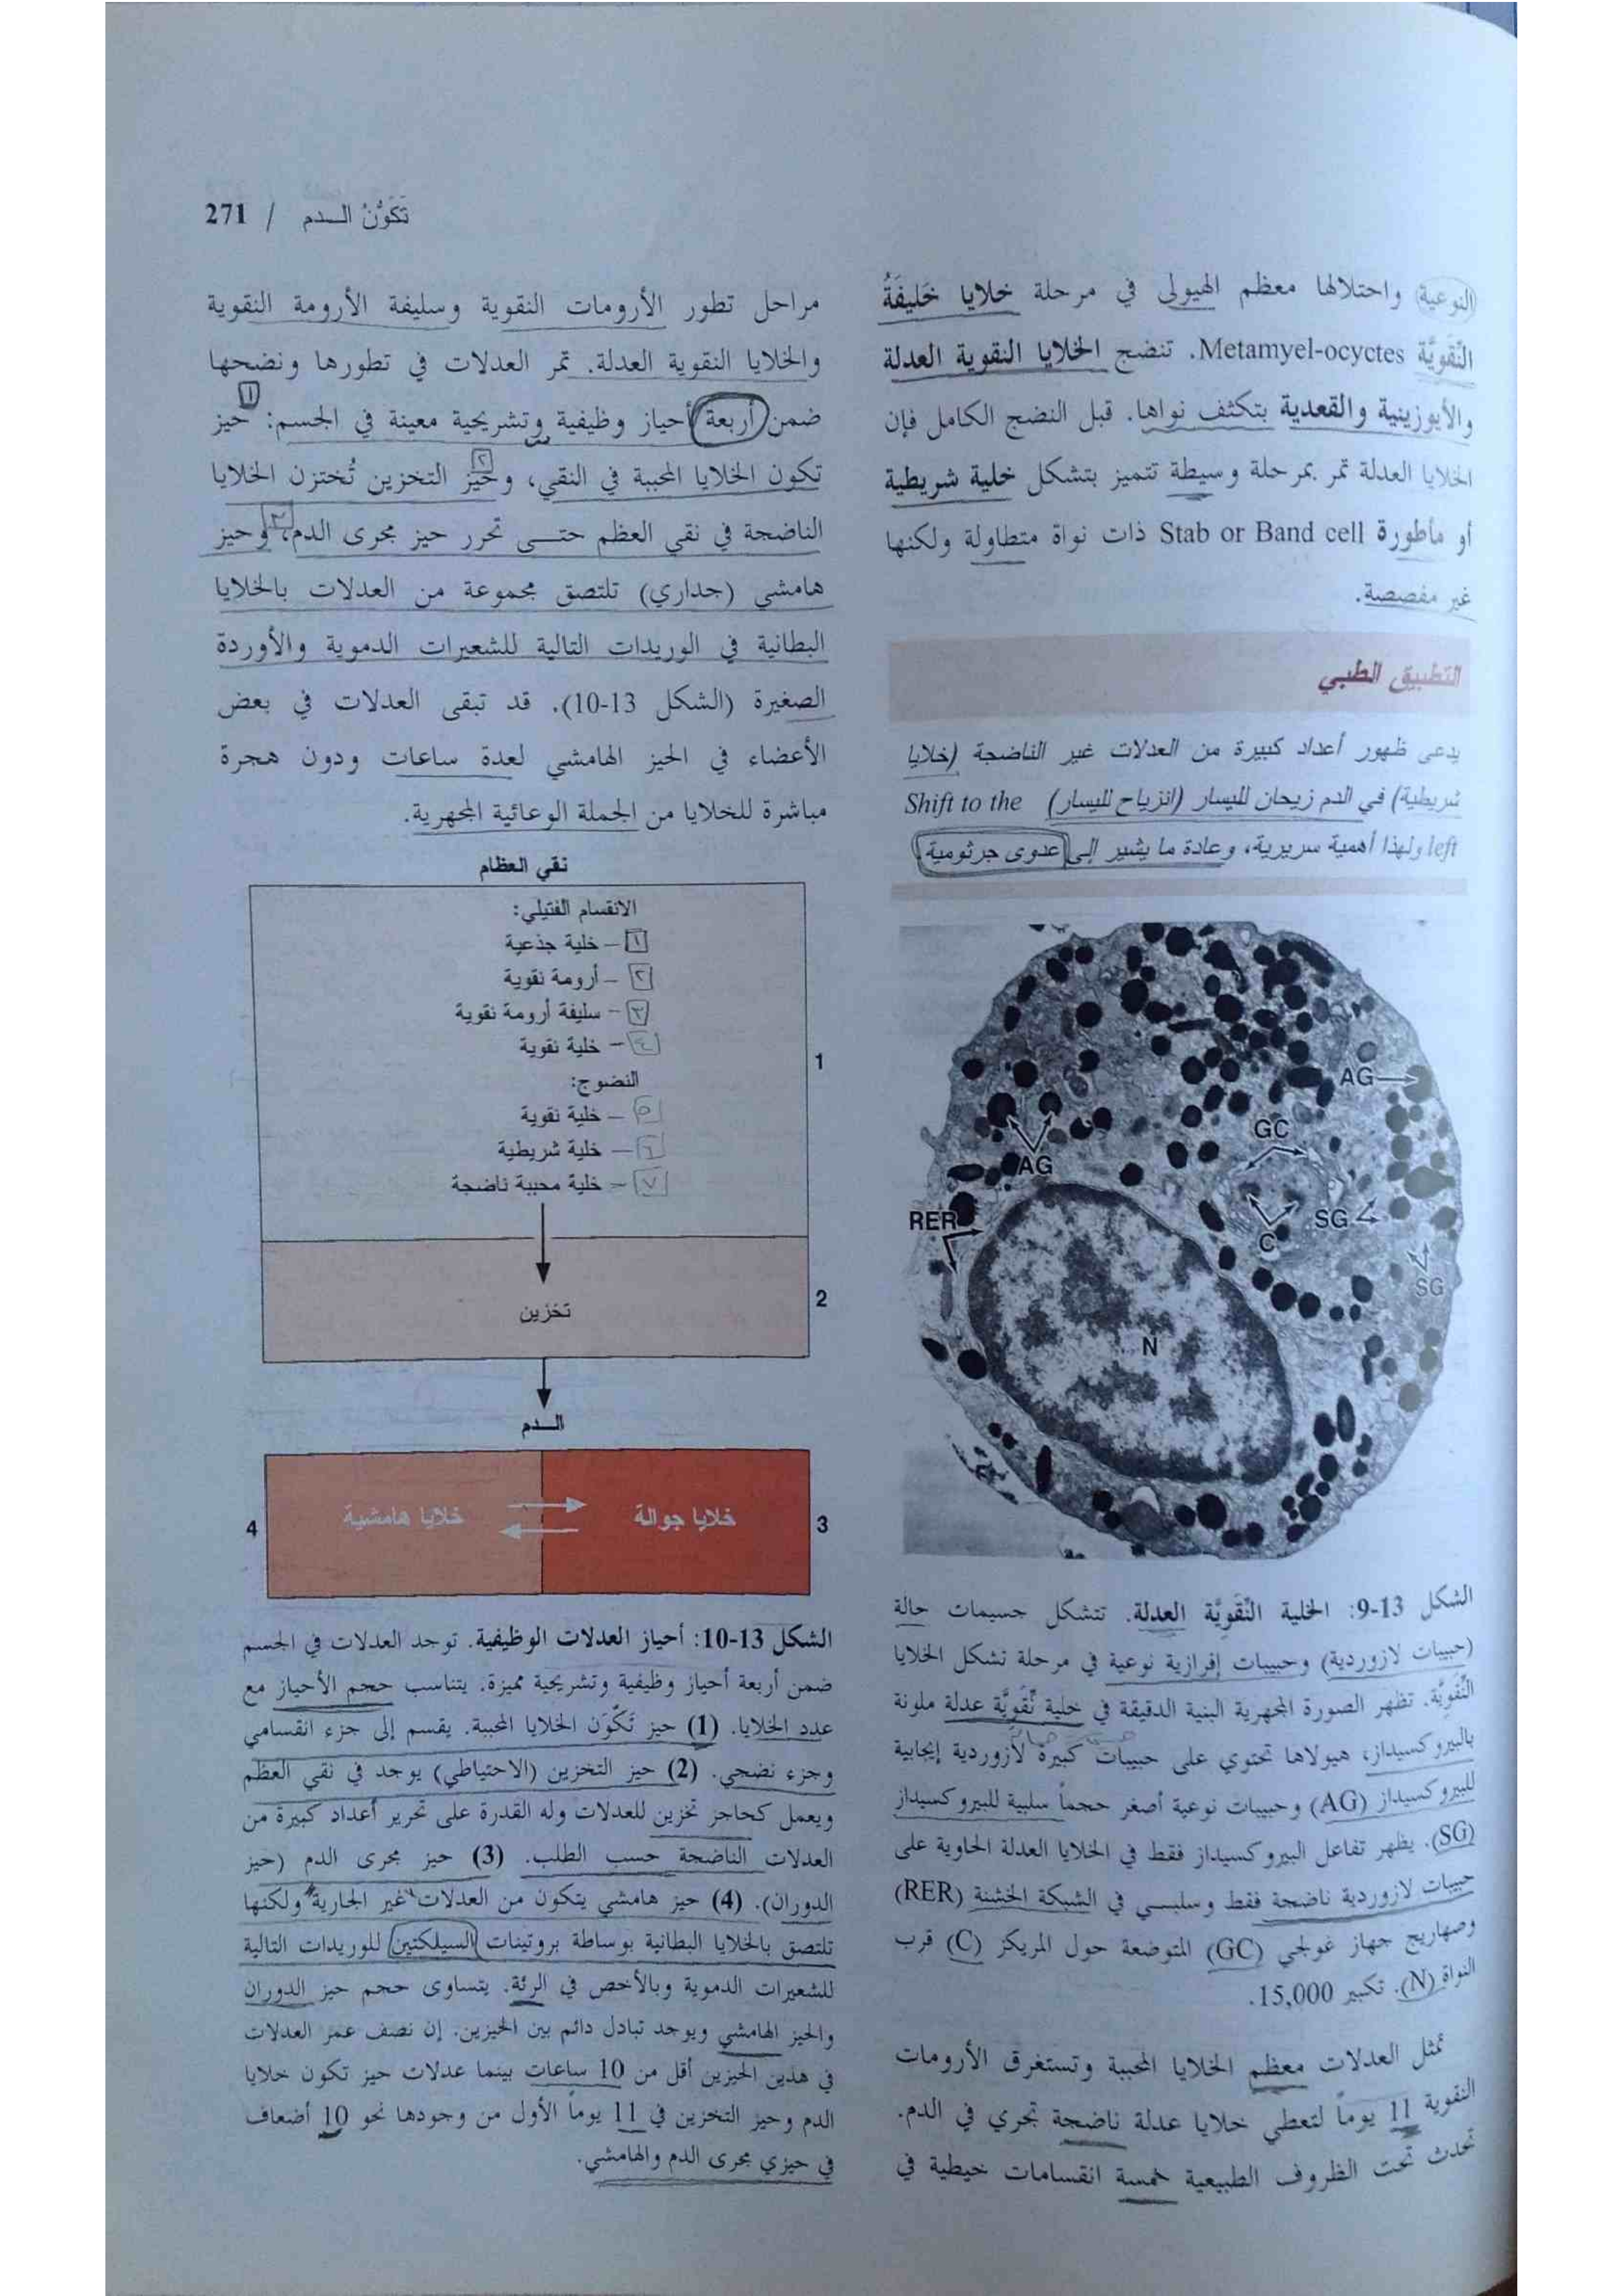 تَكَوُّنُ الـــدم / 271
النوعية) واحتلالها معظم الهيولى في مرحلة خلايا خَليفَةُ
النِّقَويَّة Metamyel-ocyctes. تنضج الخلايا النقوية العدلة
والأيوزينية والقعدية بتكثف نواها. قبل النضج الكامل فإن
الخلايا العدلة تمر بمرحلة وسيطة تتميز بتشكل خلية شريطية
أو مأطورة Stab or Band cell ذات نواة متطاولة ولكنها
غير مفصصة.
التطبيق الطبي
يدعى ظهور أعداد كبيرة من العدلات غير الناضجة (خلايا
شريطية) في الدم زيحان لليسار (انزياح لليسار) Shift to the
left ولهذا أهمية سريرية، وعادة ما يشير إلى عدوى جرثومية.
AG
GC
AG
RER
SG
C
SG
N
الشكل 13-9: الخلية النِّقَويَّة العدلة. تتشكل جسيمات حالة
(حبيبات لازوردية) وحبيبات إفرازية نوعية في مرحلة تشكل الخلايا
النِّقَويَّة. تظهر الصورة المجهرية البنية الدقيقة في خلية نِّقَويَّة عدلة ملونة
بالبيروكسيداز، هيولاها تحتوي على حبيبات كبيرة لازوردية إيجابية
للبيروكسيداز (AG) وحبيبات نوعية أصغر حجماً سلبية للبيروكسيداز
(SG). يظهر تفاعل البيروكسيداز فقط في الخلايا العدلة الحاوية على
حبيبات لازوردية ناضجة فقط وسلبـــي في الشبكة الخشنة (RER)
وصهاريج جهاز غولجي (GC) المتوضعة حول المريكز (C) قرب
النواة (N). تكبير 15,000.
تمثل العدلات معظم الخلايا المحببة وتستغرق الأرومات
النقوية 11 يوماً لتعطي خلايا عدلة ناضجة تجري في الدم.
تحدث تحت الظروف الطبيعية خمسة انقسامات خيطية في
مراحل تطور الأرومات النقوية وسليفة الأرومة النقوية
والخلايا النقوية العدلة. تمر العدلات في تطورها ونضجها
ضمن أربعة أحياز وظيفية وتشريحية معينة في الجسم: حيز
١
تكون الخلايا المحببة في النقي، وحيز التخزين تُختزن الخلايا
٢
الناضجة في نقي العظم حتـــى تحرر حيز مجرى الدم، وحيز
٣
هامشي (جداري) تلتصق مجموعة من العدلات بالخلايا
البطانية في الوريدات التالية للشعيرات الدموية والأوردة
الصغيرة (الشكل 13-10). قد تبقى العدلات في بعض
الأعضاء في الحيز الهامشي لعدة ساعات ودون هجرة
مباشرة للخلايا من الجملة الوعائية المجهرية.
نقي العظام
الانقسام الفتيلي:
١ – خلية جذعية
٢ – أرومة نقوية
٣ – سليفة أرومة نقوية
٤ – خلية نقوية
النضوج:
٥ – خلية نقوية
٦ – خلية شريطية
٧ – خلية محببة ناضجة
1
تخزين
2
الـــدم
خلايا جوالة
3
خلايا هامشية
4
الشكل 13-10: أحياز العدلات الوظيفية. توجد العدلات في الجسم
ضمن أربعة أحياز وظيفية وتشريحية مميزة. يتناسب حجم الأحياز مع
عدد الخلايا. (1) حيز تَكَوّن الخلايا المحببة. يقسم إلى جزء انقسامي
وجزء نضجي. (2) حيز التخزين (الاحتياطي) يوجد في نقي العظم
ويعمل كحاجز تخزين للعدلات وله القدرة على تحرير أعداد كبيرة من
العدلات الناضجة حسب الطلب. (3) حيز مجرى الدم (حيز
الدوران). (4) حيز هامشي يتكون من العدلات غير الجارية ولكنها
تلتصق بالخلايا البطانية بوساطة بروتينات السيلكتين للوريدات التالية
للشعيرات الدموية وبالأخص في الرئة. يتساوى حجم حيز الدوران
والحيز الهامشي ويوجد تبادل دائم بين الحيزين. إن نصف عمر العدلات
في هذين الحيزين أقل من 10 ساعات بينما عدلات حيز تكون خلايا
الدم وحيز التخزين في 11 يوماً الأول من وجودها نحو 10 أضعاف
في حيزي مجرى الدم والهامشي.